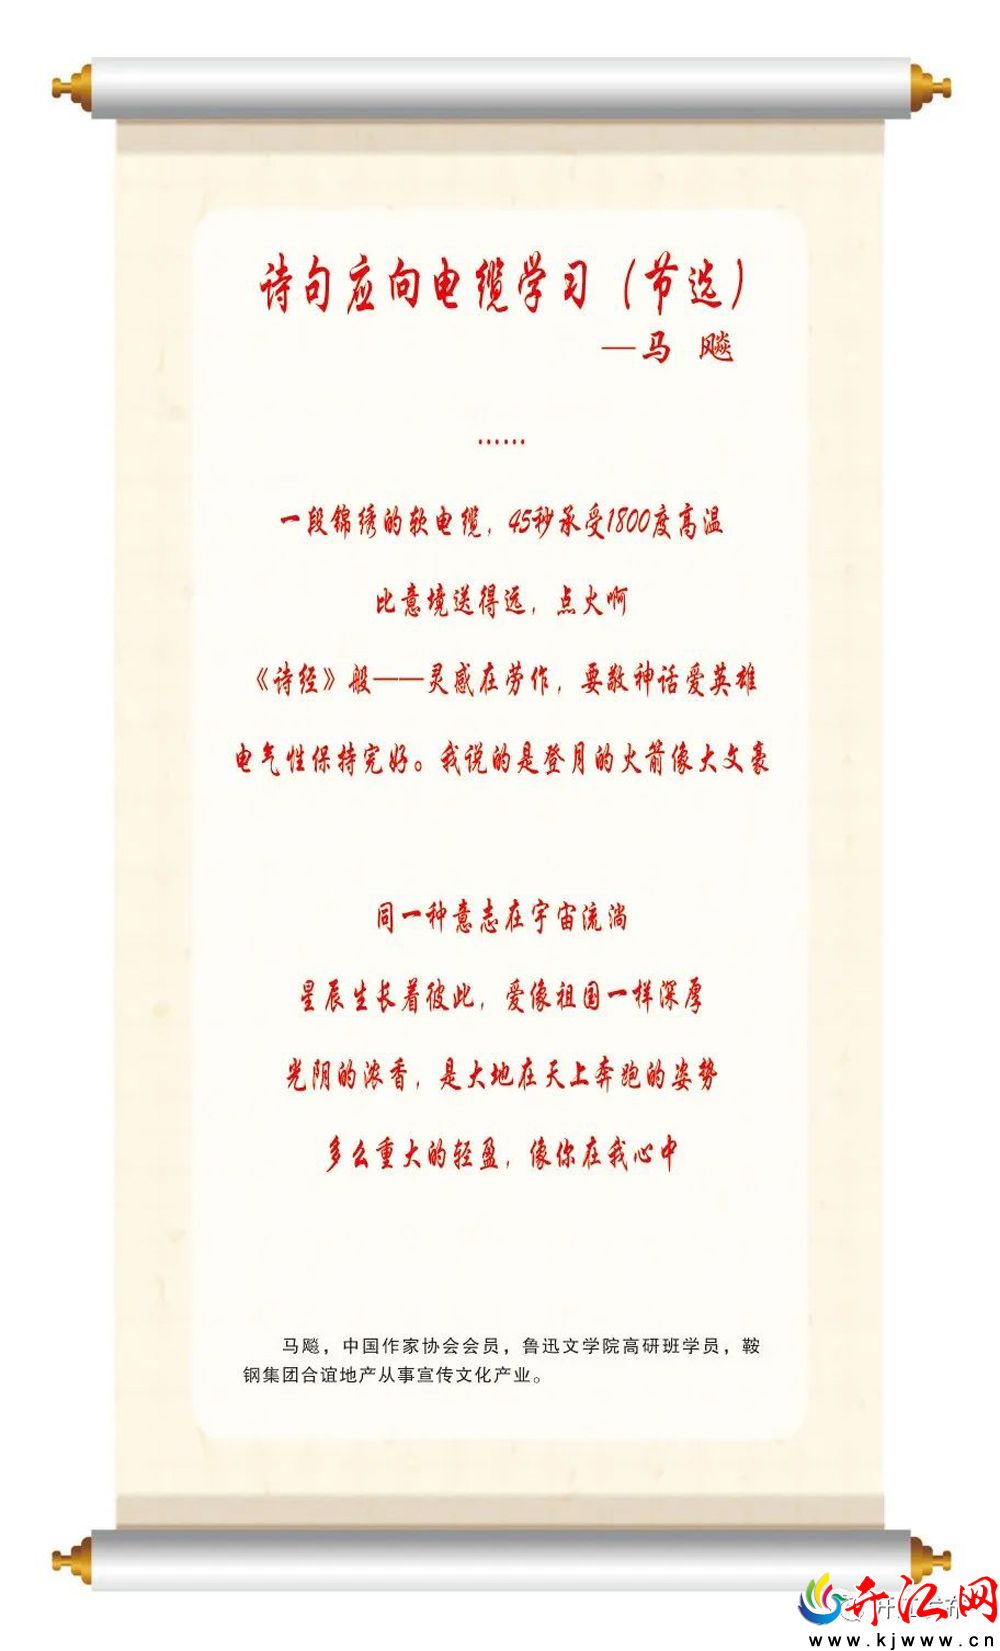 诗句应向电缆学习（节选）
—马 飚
……
一段锦绣的软电缆，45秒承受1800度高温
比意境送得远，点火啊
《诗经》般——灵感在劳作，要敬神话爱英雄
电气性保持完好。我说的是登月的火箭像大文豪
同一种意志在宇宙流淌
星辰生长着彼此，爱像祖国一样深厚
光阴的浓香，是大地在天上奔跑的姿势
多么重大的轻盈，像你在我心中
马飚，中国作家协会会员，鲁迅文学院高研班学员，鞍
钢集团合谊地产从事宣传文化产业。
开江网
www.kjwww.cn